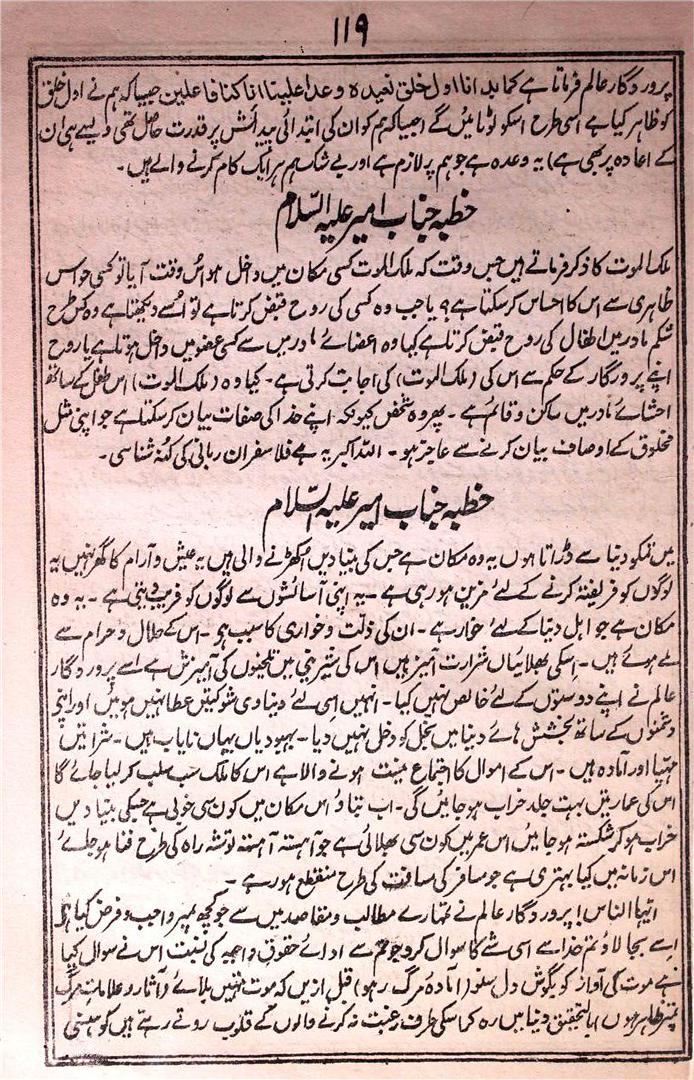 ۱۱۹
پروردگار عالم فرماتا ہے کما بدانا اول خلق نعیدہ وعدا علینا انا کنا فاعلین جیسا کہ ہم نے اول خلق
کو ظاہر کیا ہے اسی طرح اسکو لوٹائیں گے (جیسا کہ ہم کو ان کی ابتدائی پیدائش پر قدرت حاصل تھی ویسے ہی ان
کے اعادہ پر بھی ہے) یہ وعدہ ہے جو ہم پر لازم ہے اور بے شک ہم ہر ایک کام کرنے والے ہیں۔
خطبہ جناب امیر علیہ السلام
ملک الموت کا ذکر فرماتے ہیں جس وقت کہ ملک الموت کسی مکان میں داخل ہو اُس وقت آیا تو کسی حواس
ظاہری سے اس کا احساس کر سکتا ہے؟ یا جب وہ کسی کی روح قبض کرتا ہے تو اُسے دیکھتا ہے وہ کس طرح
شکم مادر میں اطفال کی روح قبض کرتا ہے کیا وہ اعضائے مادر میں سے کسی عضو میں داخل ہوتا ہے یا روح
اپنے پروردگار کے حکم سے اس کی (ملک الموت) کی اجابت کرتی ہے۔ کیا وہ (ملک الموت) اس طفل کے ساتھ
احشائے مادر میں ساکن و قائم ہے۔ پھر وہ شخص کیونکر اپنے خدا کی صفات بیان کر سکتا ہے جو اپنی مثل
مخلوق کے اوصاف بیان کرنے سے عاجز ہو۔ اللہ اکبر یہ ہے فلاسفران ربانی کی کُنہ شناسی۔
خطبہ جناب امیر علیہ السلام
میں تمکو دنیا سے ڈراتا ہوں یہ وہ مکان ہے جس کی بنیادیں اُکھڑنے والی ہیں یہ عیش و آرام کا گھر نہیں یہ
لوگوں کو فریفتہ کرنے کے لئے مزین ہو رہی ہے۔ یہ اپنی آسائشوں سے لوگوں کو فریب دیتی ہے۔ یہ وہ
مکان ہے جو اہل دنیا کے لئے خوار ہے۔ ان کی ذلت و خواری کا سبب ہے۔ اس کے حلال و حرام سے
ملے ہوئے ہیں۔ اسکی بھلائیاں شرارت آمیز ہیں اس کی شیرینی میں تلخیوں کی آمیزش ہے اسے پروردگار
عالم نے اپنے دوستوں کے لئے خالص نہیں کیا۔ انہیں اسی لئے دنیاوی شوکتیں عطا نہیں ہوئیں اور اپنے
دشمنوں کے ساتھ بخشش ہائے دنیا میں بخل کو دخل نہیں دیا۔ بہبودیاں یہاں نایاب ہیں۔ شرارتیں
مہیا اور آمادہ ہیں۔ اس کے اموال کا اجتماع نیست ہونے والا ہے اس کا ملک سب سلب کر لیا جائے گا
اس کی عمارتیں بہت جلد خراب ہو جائیں گی۔ اب بتاؤ اس مکان میں کون سی خوبی ہے جسکی بنیادیں
خراب ہو کر شکستہ ہو جائیں اس عمر میں کون سی بھلائی ہے جو آہستہ آہستہ توشہ راہ کی طرح فنا ہو جائے
اس زمانہ میں کیا بہتری ہے جو مسافر کی مسافت کی طرح منقطع ہو رہے۔
ایہا الناس! پروردگار عالم نے تمہارے مطالب و مقاصد میں سے جو کچھ تمپر واجب و فرض کیا ہے
اسے بجا لاؤ تم خدا سے اسی شے کا سوال کرو جو تم سے ادائے حقوق واجبہ کی نسبت اس نے سوال کیا
ہے موت کی آواز کو بگوش دل سنو (آمادہ مرگ رہو) قبل ازیں کہ موت تمہیں بلائے (آثار و علامات مرگ
تمپر ظاہر ہوں) بالتحقیق دنیا میں رہ کر اسکی طرف رغبت نہ کرنے والوں کے قلوب روتے رہتے ہیں گو ہنسی